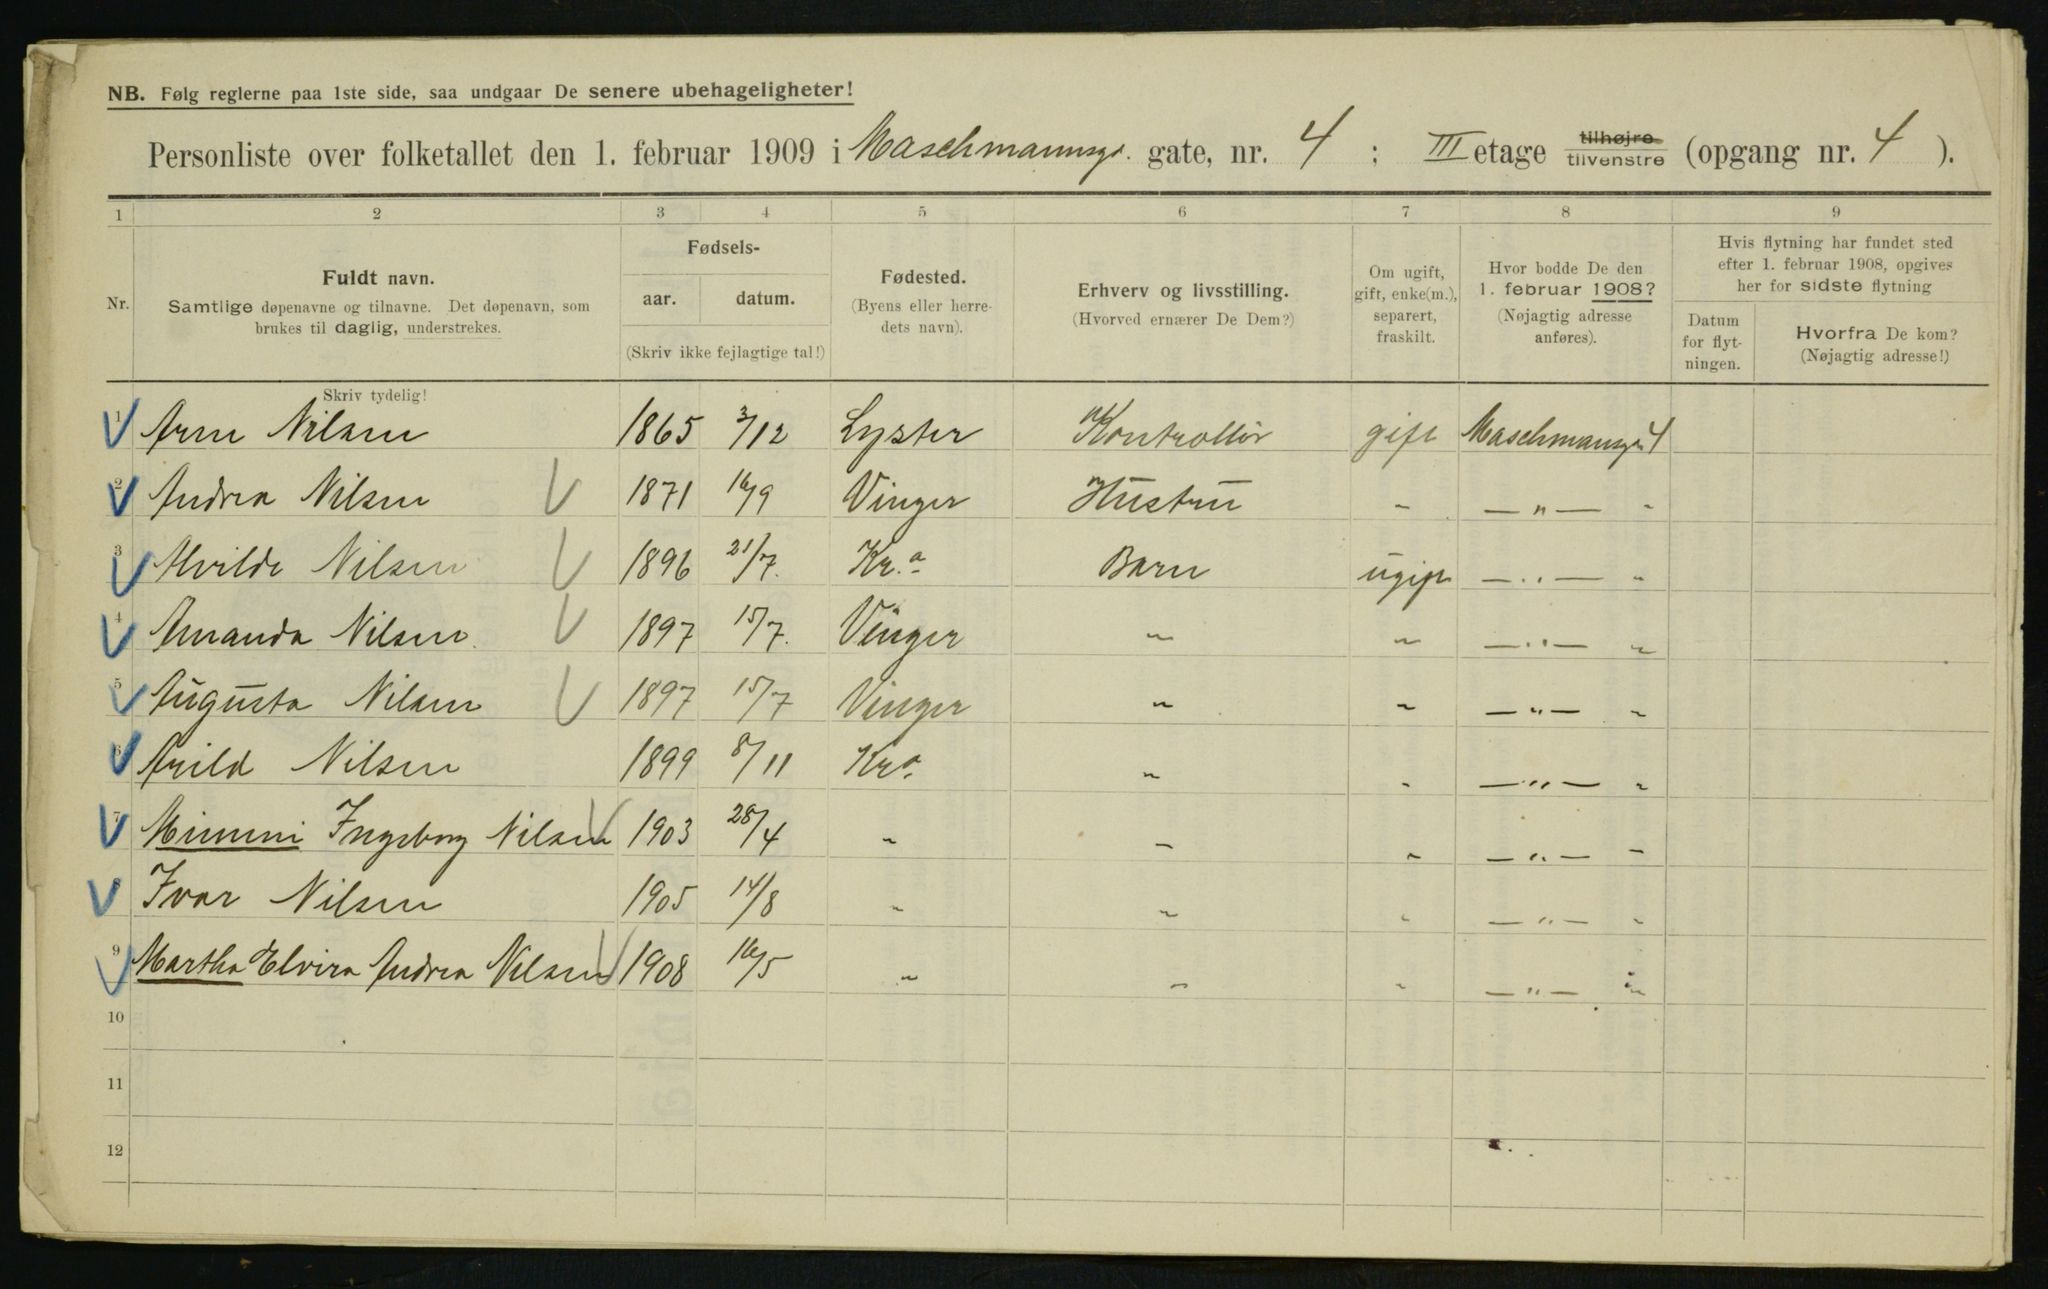 NB. Følg reglerne paa 1ste side, saa undgaar De senere ubehageligheter!
Personliste over folketallet den 1. februar 1909 i Maschmannsgt. gate, nr. 4 ; III etage tilhøjre tilvenstre (opgang nr. 4 ).
1 2 3 4 5 6 7 8 9
Nr. Fuldt navn. Samtlige døpenavne og tilnavne. Det døpenavn, som brukes til daglig, understrekes.
Fødsels- aar. datum. (Skriv ikke fejlagtige tal!)
Fødested. (Byens eller herredets navn).
Erhverv og livsstilling. (Hvorved ernærer De Dem?)
Om ugift, gift, enke(m.), separert, fraskilt.
Hvor bodde De den 1. februar 1908? (Nøjagtig adresse anføres).
Hvis flytning har fundet sted efter 1. februar 1908, opgives her for sidste flytning
Datum for flytningen.
Hvorfra De kom? (Nøjagtig adresse!)
Skriv tydelig!
1 Arne Nilsen 1865 3/12 Lyster Kontrollør gift Maschmansgt 4
2 Andrea Nilsen 1871 16/9 Vinger Hustru " — " — "
3 Alvilde Nilsen 1896 21/7. Kr.a Barn ugift — " — "
4 Amanda Nilsen. 1897 15/7. Vinger " " — " — "
5 Augusta Nilsen 1897 15/7 Vinger " " — " — "
6 Arild Nilsen 1899 8/11 Kra. " " — " — "
7 Mimmi Ingeborg Nilsen 1903 28/4 " " " — " — "
8 Ivar Nilsen 1905 14/8 " " " — " — "
9 Martha Elvira Andrea Nilsen 1908 16/5 " " " — " — "
10
11
12